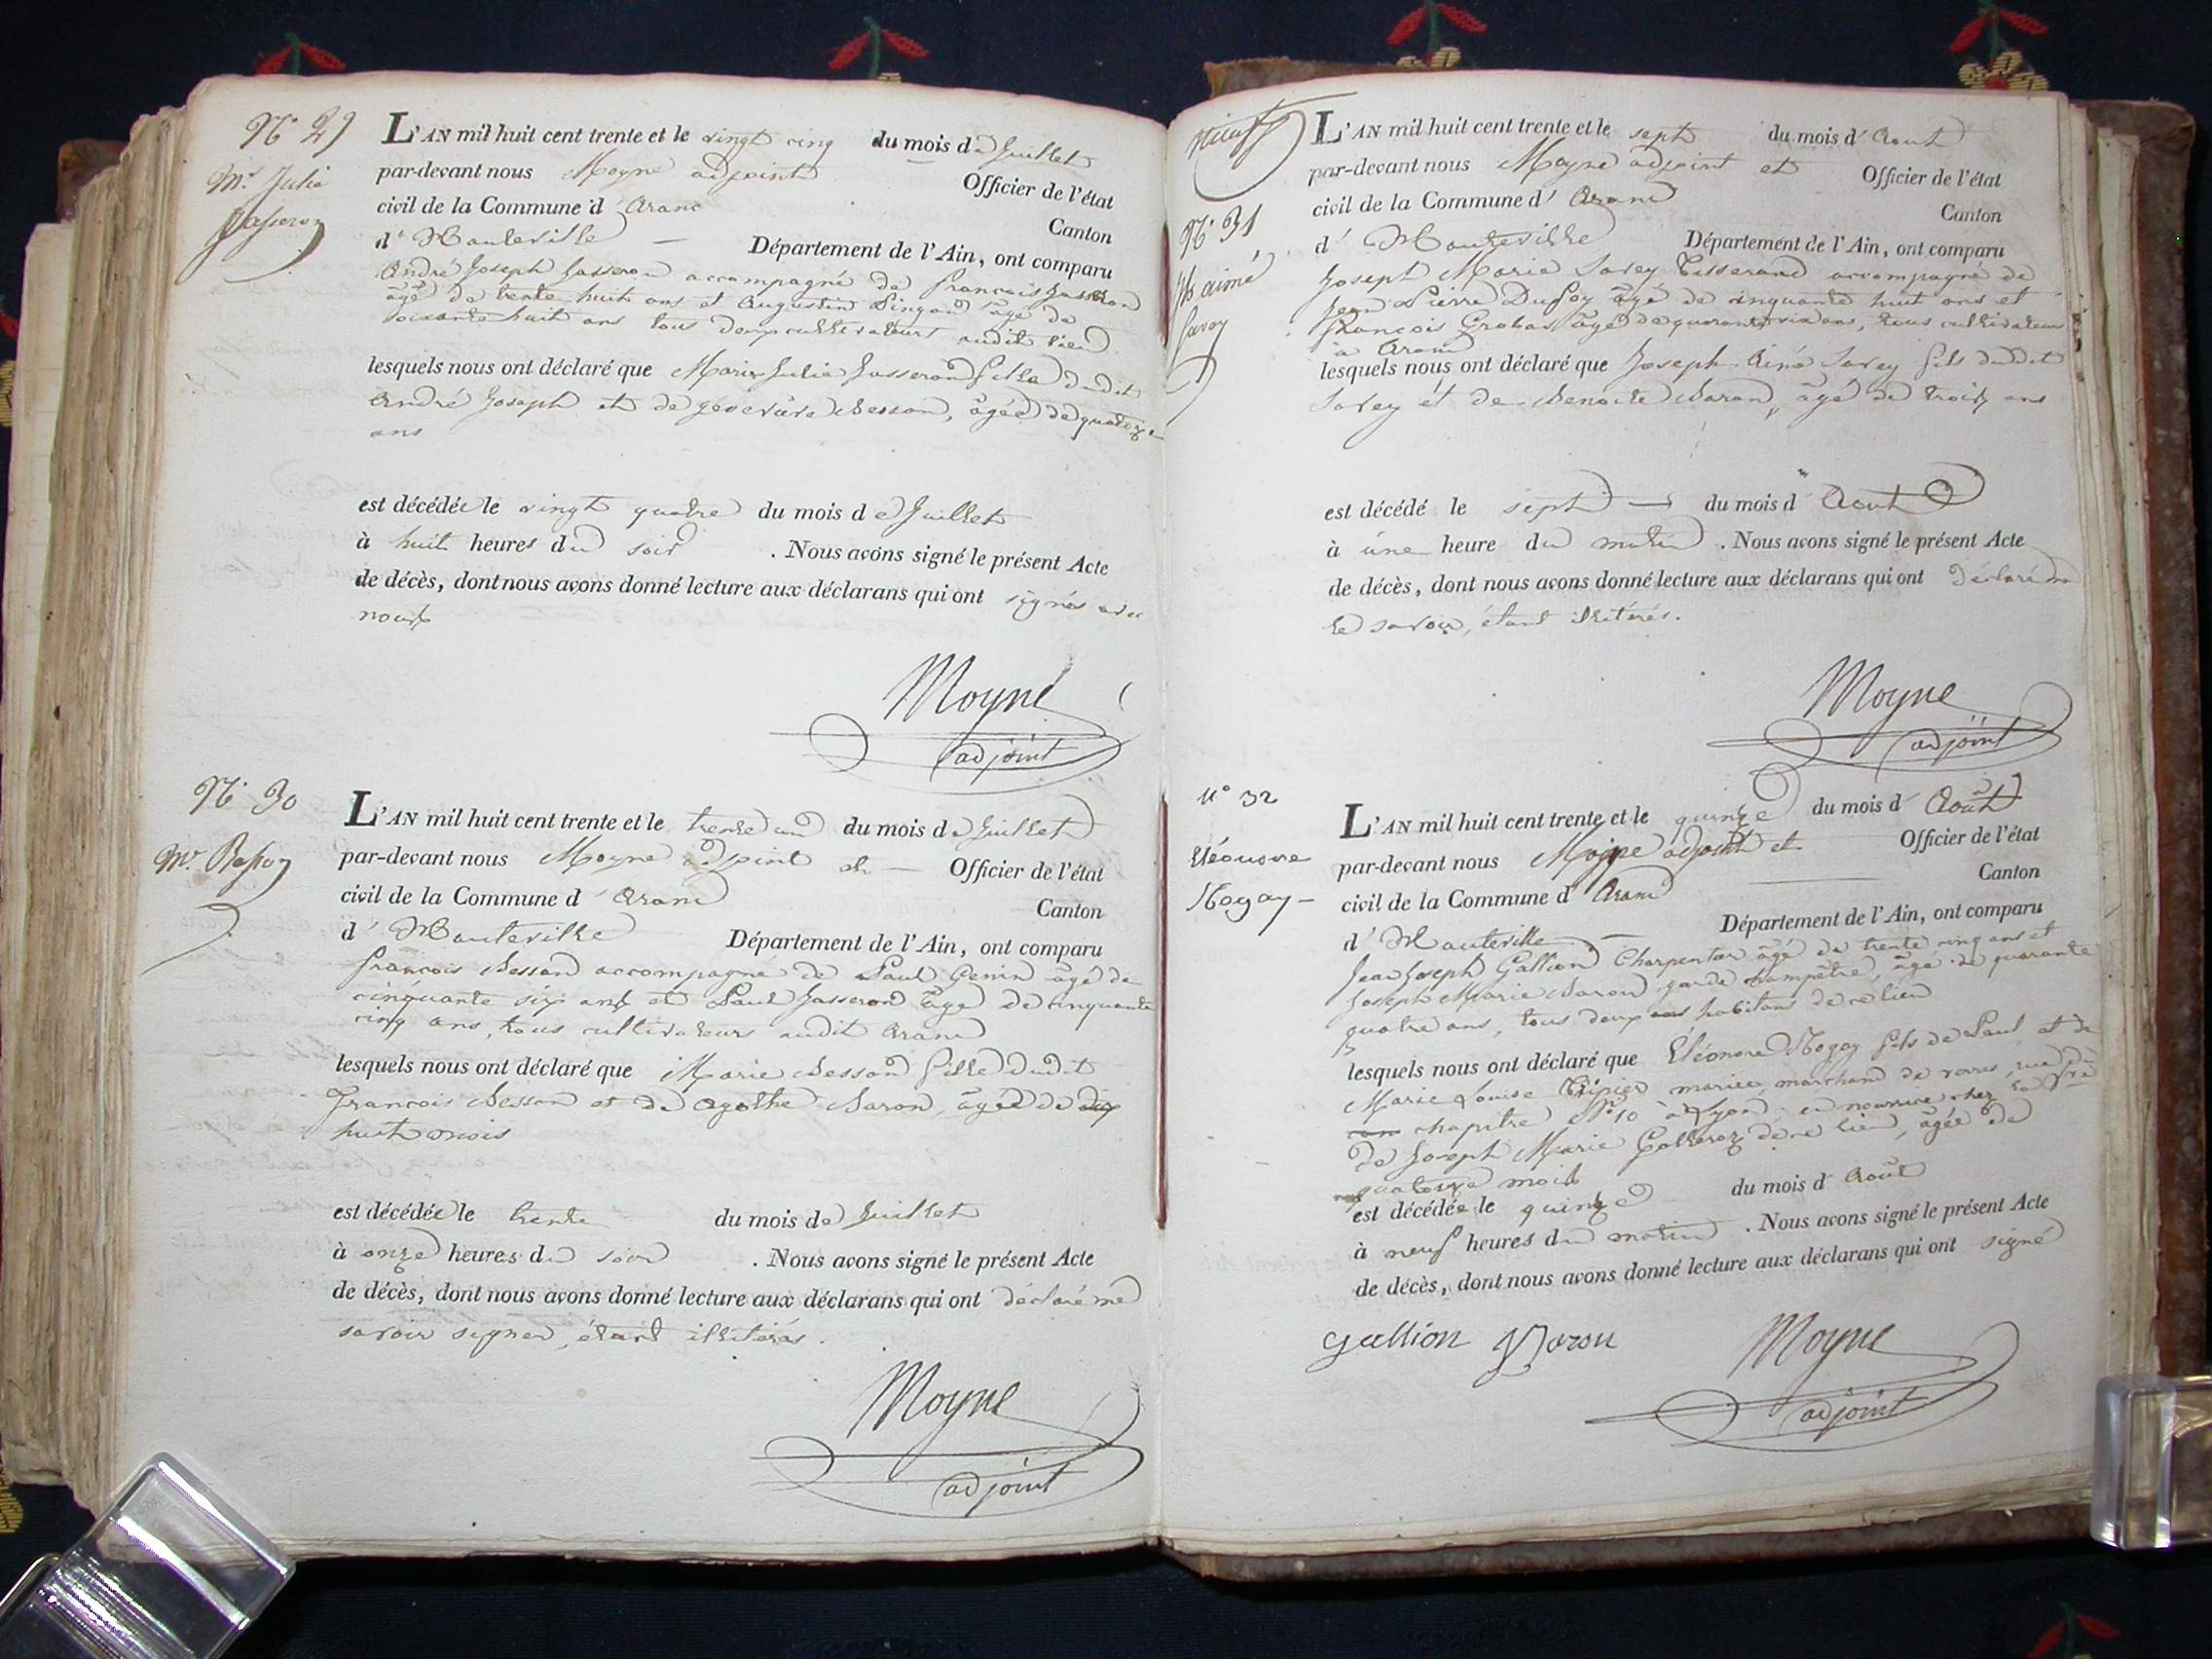 N° 29
Mie Julie
Jasseron
L'AN mil huit cent trente et le vingt cinq du mois de Juillet
par-devant nous Moyne adjoint Officier de l'état
civil de la Commune d' Aranc Canton
d' Hauteville — Département de l'Ain, ont comparu
André Joseph Jasseron accompagné de francois Jasseron
âgé de trente huit ans et Augustin Pingon âgé de
soixante huit ans tous deux cultivateurs audit lieu
lesquels nous ont déclaré que Marie Julie Jasseron fille dudit
André Joseph et de geneviève Besson, âgée de quatorze
ans
est décédée le vingt quatre du mois de Juillet
à huit heures du soir . Nous avons signé le présent Acte
de décès, dont nous avons donné lecture aux déclarans qui ont signés avec
nous
Moyne
adjoint
N° 30
Mie Besson
L'AN mil huit cent trente et le trente un du mois de Juillet
par-devant nous Moyne adjoint et — Officier de l'état
civil de la Commune d' Aranc Canton
d' Hauteville Département de l'Ain, ont comparu
francois Besson accompagné de Paul Genin âgé de
cinquante six ans et Paul Jasseron âgé de cinquante
cinq ans, tous cultivateurs audit Aranc
lesquels nous ont déclaré que Marie Besson fille dudit
francois Besson et de Agathe Baron, âgée de dix
huit mois
est décédée le trente du mois de Juillet
à onze heures du soir . Nous avons signé le présent Acte
de décès, dont nous avons donné lecture aux déclarans qui ont déclaré ne
savoir signer, étant illitérés.
Moyne
adjoint
N° 31
Jh aimé
Savey
L'AN mil huit cent trente et le sept du mois d' Aout
par-devant nous Moyne adjoint et Officier de l'état
civil de la Commune d' Aranc Canton
d' Hauteville Département de l'Ain, ont comparu
Joseph Marie Savey Tisserand accompagné de
Jean Pierre Dufoy âgé de cinquante huit ans et
françois Grobas âgé de quarante six ans, tous cultivateurs
à Aranc
lesquels nous ont déclaré que Joseph Aimé Savey fils dudit
Savey et de Benoite Baron, âgé de trois ans
est décédé le sept — du mois d' Aout
à une heure du matin . Nous avons signé le présent Acte
de décès, dont nous avons donné lecture aux déclarans qui ont déclaré ne
le savoir, étant illitérés.
Moyne
adjoint
N° 32
Eléonore
Nogay —
L'AN mil huit cent trente et le quinze du mois d' Août
par-devant nous Moyne adjoint et Officier de l'état
civil de la Commune d' Aranc Canton
d' Hauteville — Département de l'Ain, ont comparu
Jean Joseph Gallion Charpentier âgé de trente cinq ans et
Joseph Marie Baron garde champêtre, âgé de quarante
quatre ans, tous deux habitans de ce lieu
lesquels nous ont déclaré que Eléonore Nogay fils de Paul et de
Marie Louise Tripier mariés marchand de verres, rue du
chapitre N° 10 à Lyon en nourrice chez
de Joseph Marie de ce lieu, âgée de
quatorze mois
est décédée le quinze du mois d' Août
à neuf heures du matin . Nous avons signé le présent Acte
de décès, dont nous avons donné lecture aux déclarans qui ont signé
Gallion Baron Moyne
adjoint